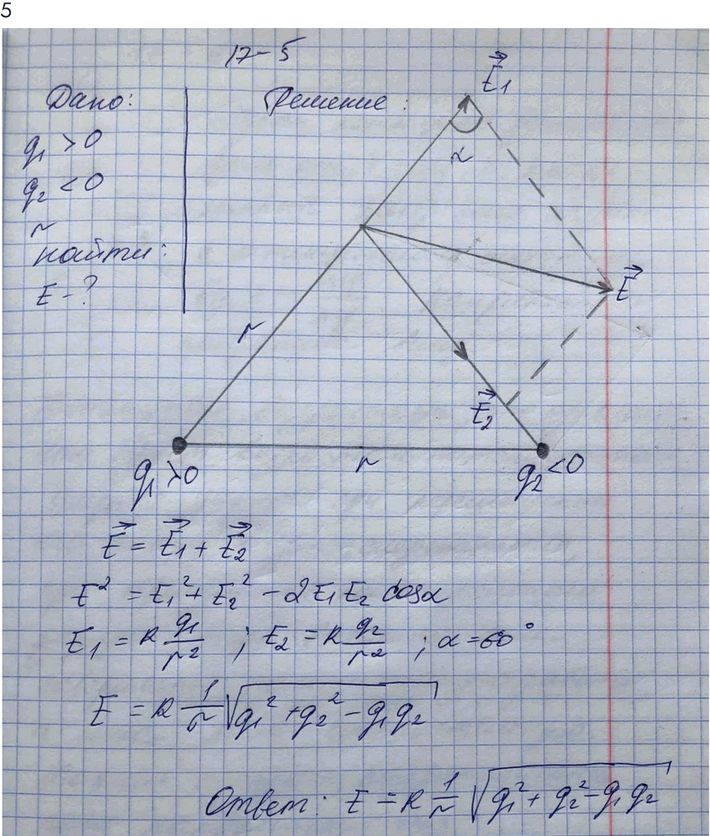 5
17-5
Дано:
q₁ > 0
q₂ < 0
r
найти:
E - ?
Решение:
E⃗₁
α
E⃗
r
E⃗₂
r
q₁ > 0
q₂ < 0
E⃗ = E⃗₁ + E⃗₂
E² = E₁² + E₂² - 2E₁E₂ cosα
E₁ = k q₁/r² ; E₂ = k q₂/r² ; α = 60°
E = k 1/r √(q₁² + q₂² - q₁q₂)
Ответ: E = k 1/r √(q₁² + q₂² - q₁q₂)